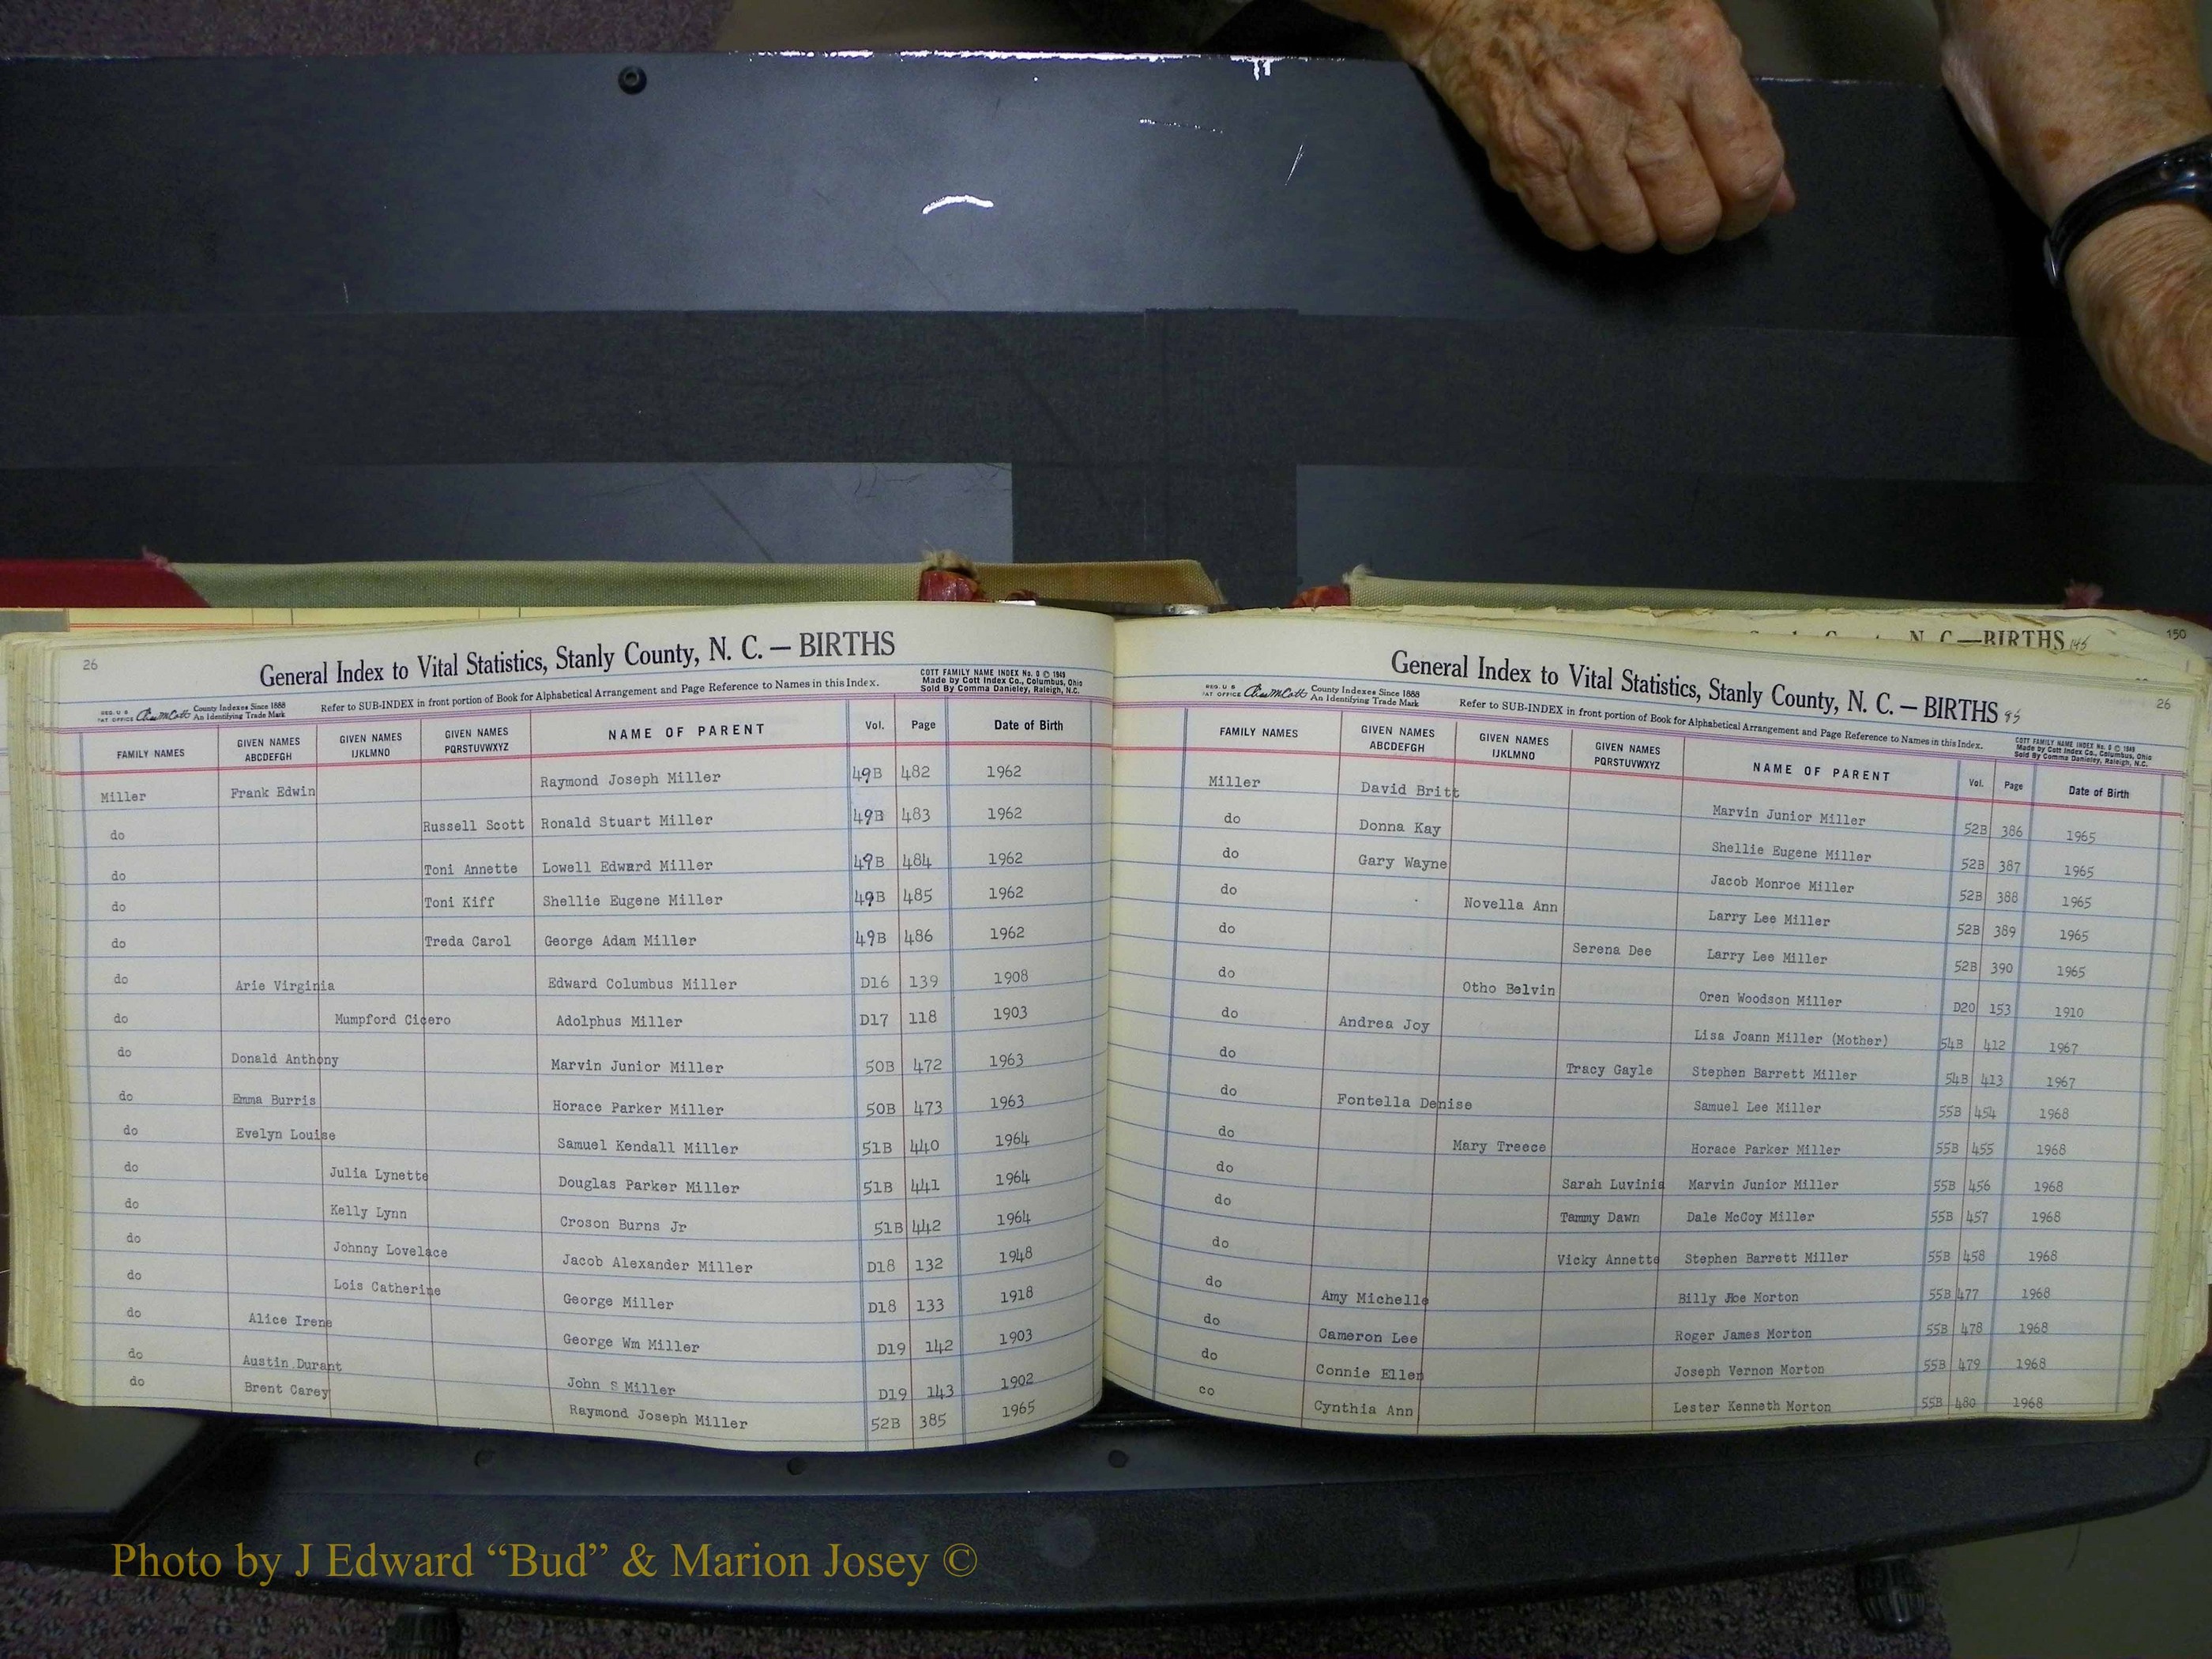 26
General Index to Vital Statistics, Stanly County, N. C. — BIRTHS
COTT FAMILY NAME INDEX No. 0 © 1949
Made by Cott Index Co., Columbus, Ohio
Sold By Comma Danieley, Raleigh, N.C.
REG. U S PAT OFFICE County Indexes Since 1888 An Identifying Trade Mark
Refer to SUB-INDEX in front portion of Book for Alphabetical Arrangement and Page Reference to Names in this Index.
FAMILY NAMES GIVEN NAMES ABCDEFGH GIVEN NAMES IJKLMNO GIVEN NAMES PQRSTUVWXYZ NAME OF PARENT Vol. Page Date of Birth
Miller Frank Edwin Raymond Joseph Miller 49B 482 1962
do Russell Scott Ronald Stuart Miller 49B 483 1962
do Toni Annette Lowell Edward Miller 49B 484 1962
do Toni Kiff Shellie Eugene Miller 49B 485 1962
do Treda Carol George Adam Miller 49B 486 1962
do Arie Virginia Edward Columbus Miller D16 139 1908
do Mumpford Cicero Adolphus Miller D17 118 1903
do Donald Anthony Marvin Junior Miller 50B 472 1963
do Emma Burris Horace Parker Miller 50B 473 1963
do Evelyn Louise Samuel Kendall Miller 51B 440 1964
do Julia Lynette Douglas Parker Miller 51B 441 1964
do Kelly Lynn Croson Burns Jr 51B 442 1964
do Johnny Lovelace Jacob Alexander Miller D18 132 1948
do Lois Catherine George Miller D18 133 1918
do Alice Irene George Wm Miller D19 142 1903
do Austin Durant John S Miller D19 143 1902
do Brent Carey Raymond Joseph Miller 52B 385 1965
N. C.—BIRTHS 145
150
General Index to Vital Statistics, Stanly County, N. C. — BIRTHS 95
26
REG. U S PAT OFFICE County Indexes Since 1888 An Identifying Trade Mark
Refer to SUB-INDEX in front portion of Book for Alphabetical Arrangement and Page Reference to Names in this Index.
COTT FAMILY NAME INDEX No. 0 © 1949
Made by Cott Index Co., Columbus, Ohio
Sold By Comma Danieley, Raleigh, N.C.
FAMILY NAMES GIVEN NAMES ABCDEFGH GIVEN NAMES IJKLMNO GIVEN NAMES PQRSTUVWXYZ NAME OF PARENT Vol. Page Date of Birth
Miller David Britt Marvin Junior Miller 52B 386 1965
do Donna Kay Shellie Eugene Miller 52B 387 1965
do Gary Wayne Jacob Monroe Miller 52B 388 1965
do Novella Ann Larry Lee Miller 52B 389 1965
do Serena Dee Larry Lee Miller 52B 390 1965
do Otho Belvin Oren Woodson Miller D20 153 1910
do Andrea Joy Lisa Joann Miller (Mother) 54B 412 1967
do Tracy Gayle Stephen Barrett Miller 54B 413 1967
do Fontella Denise Samuel Lee Miller 55B 454 1968
do Mary Treece Horace Parker Miller 55B 455 1968
do Sarah Luvinia Marvin Junior Miller 55B 456 1968
do Tammy Dawn Dale McCoy Miller 55B 457 1968
do Vicky Annette Stephen Barrett Miller 55B 458 1968
do Amy Michelle Billy Joe Morton 55B 477 1968
do Cameron Lee Roger James Morton 55B 478 1968
do Connie Ellen Joseph Vernon Morton 55B 479 1968
co Cynthia Ann Lester Kenneth Morton 55B 480 1968
Photo by J Edward “Bud” & Marion Josey ©